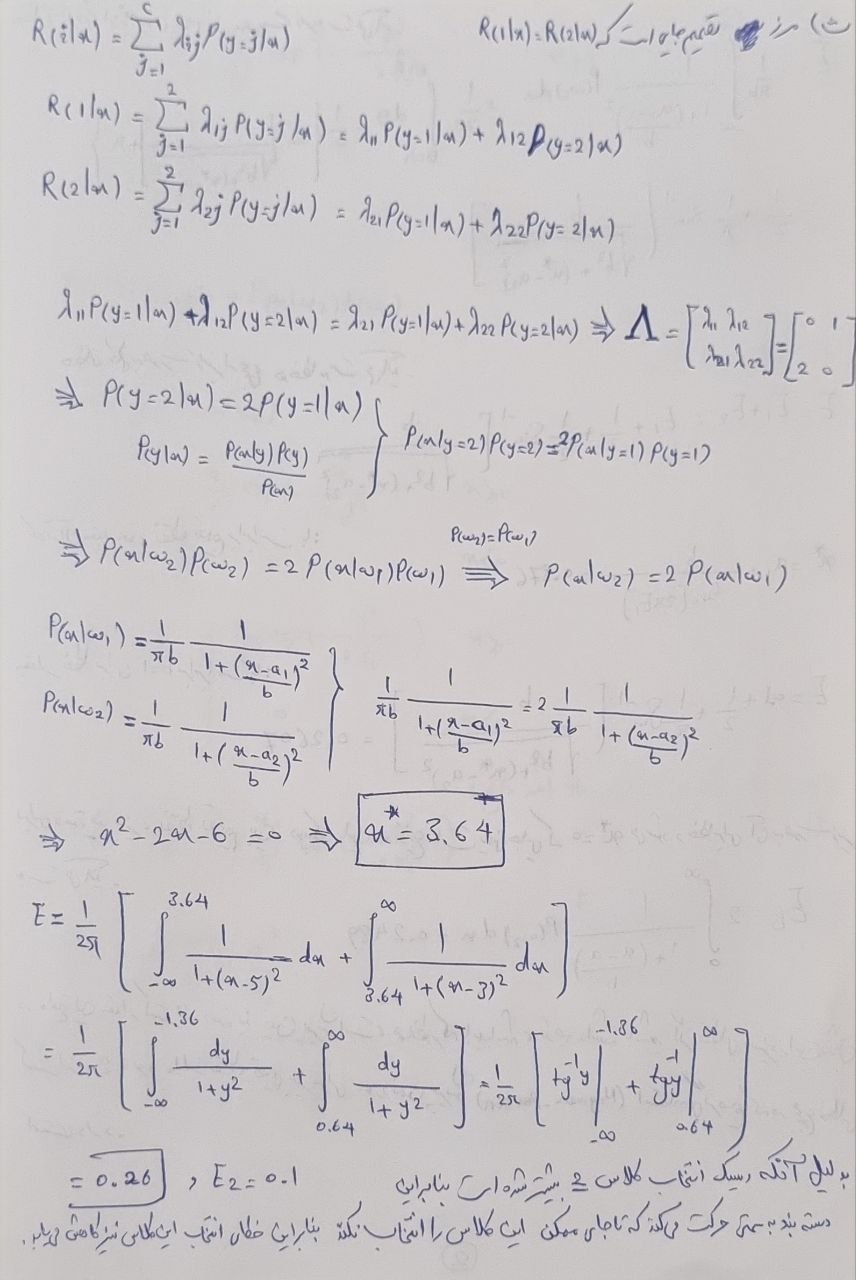 ث) مرز تصمیم جایی است که R(1|x) = R(2|x)
R(i|x) = Σ_{j=1}^{c} λij P(y=j|x)
R(1|x) = Σ_{j=1}^{2} λ1j P(y=j|x) = λ11 P(y=1|x) + λ12 P(y=2|x)
R(2|x) = Σ_{j=1}^{2} λ2j P(y=j|x) = λ21 P(y=1|x) + λ22 P(y=2|x)
λ11 P(y=1|x) + λ12 P(y=2|x) = λ21 P(y=1|x) + λ22 P(y=2|x) ⇒ Λ = [λ11 λ12; λ21 λ22] = [0 1; 2 0]
⇒ P(y=2|x) = 2P(y=1|x)
P(y|x) = P(x|y)P(y) / P(x) } P(x|y=2)P(y=2) = 2P(x|y=1)P(y=1)
⇒ P(x|ω2)P(ω2) = 2P(x|ω1)P(ω1) ⇒ P(ω2)=P(ω1) P(x|ω2) = 2P(x|ω1)
P(x|ω1) = 1/πb 1/(1+((x-a1)/b)²)
P(x|ω2) = 1/πb 1/(1+((x-a2)/b)²) } 1/πb 1/(1+((x-a1)/b)²) = 2 1/πb 1/(1+((x-a2)/b)²)
⇒ x² - 2x - 6 = 0 ⇒ x* = 3.64
E = 1/2π [ ∫_{-∞}^{3.64} 1/(1+(x-5)²) dx + ∫_{3.64}^{∞} 1/(1+(x-3)²) dx ]
= 1/2π [ ∫_{-∞}^{-1.36} dy/(1+y²) + ∫_{0.64}^{∞} dy/(1+y²) ] = 1/2π [ tg⁻¹y |_{-∞}^{-1.36} + tg⁻¹y |_{0.64}^{∞} ]
= 0.26 , E2 = 0.1 به دلیل آنکه ریسک انتخاب کلاس 2 بیشتر شده است بنابراین
دسته بند به سمتی حرکت می‌کند که تا جای ممکن این کلاس را انتخاب نکند بنابراین خطای انتخاب این کلاس نیز کاهش می‌یابد.